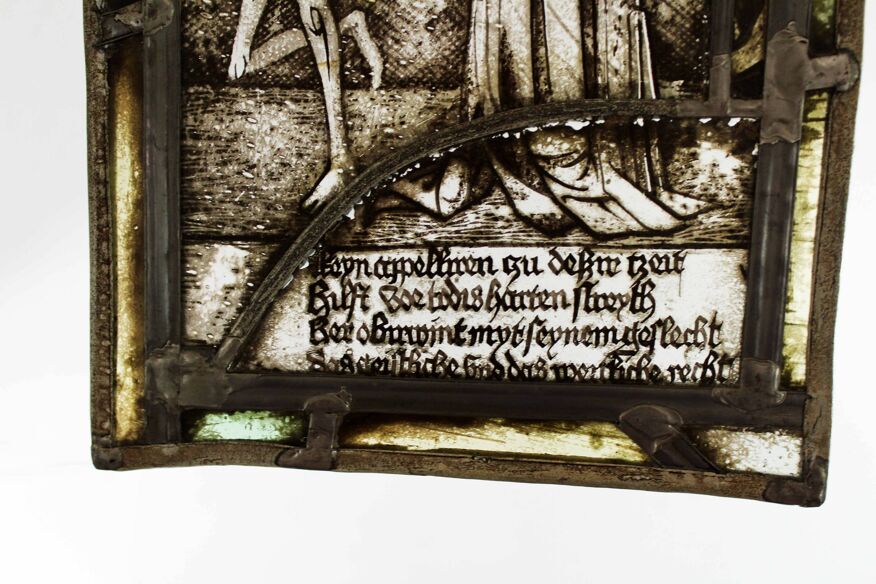 keyn appelliren zu deßir tzeit
Hilft vor todis harten streyth
Her obirwint myt seynem geslecht
das geistliche vnd das werltliche recht